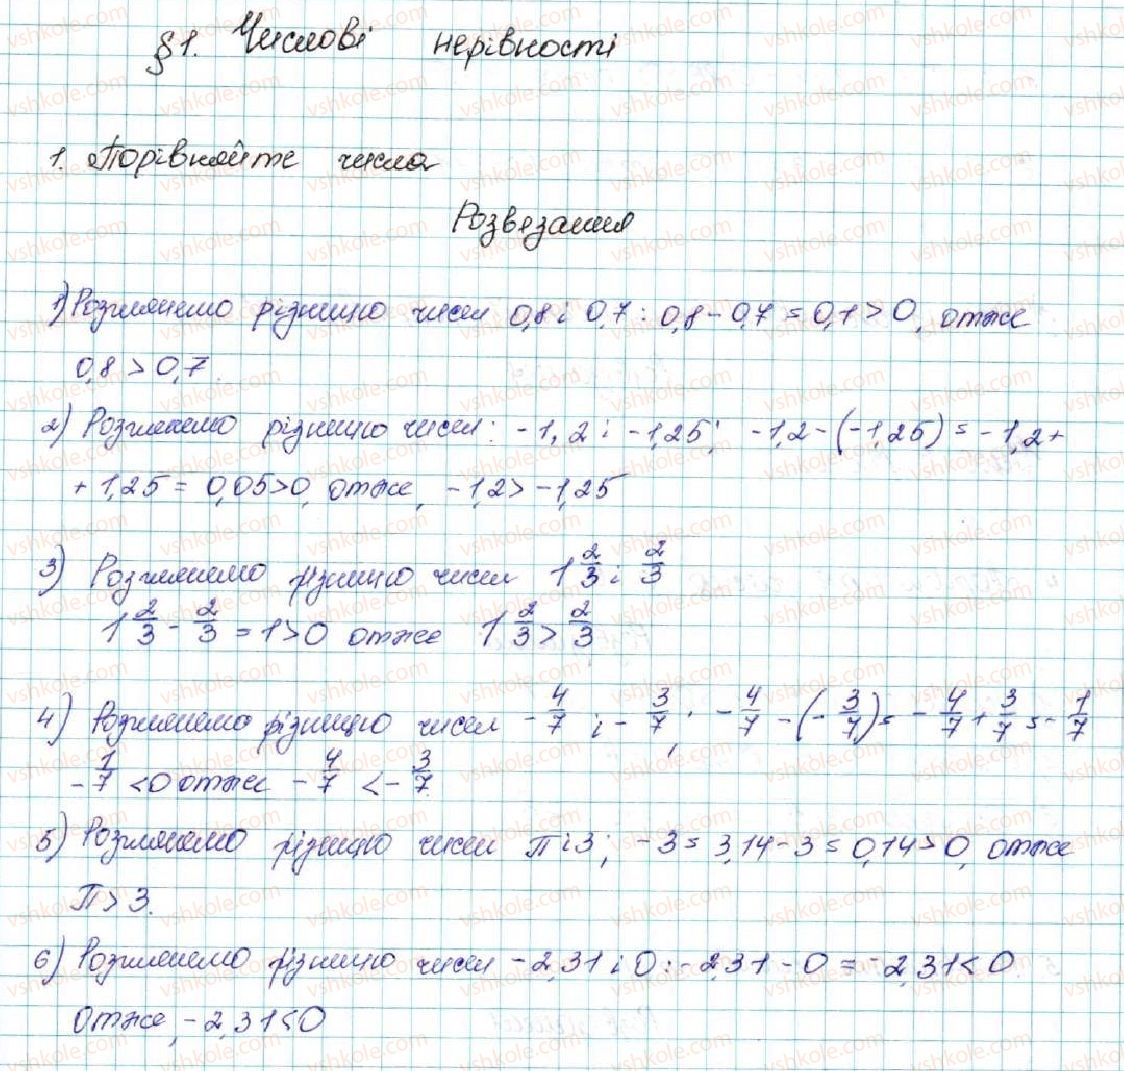 §1. Числові нерівності
1. Порівняйте числа
Розвязання
1) Розглянемо різницю чисел 0,8 і 0,7 : 0,8 - 0,7 = 0,1 > 0, отже
0,8 > 0,7.
2) Розглянемо різницю чисел: -1,2 і -1,25; -1,2 - (-1,25) = -1,2 +
+ 1,25 = 0,05 > 0, отже, -1,2 > -1,25
3) Розглянемо різницю чисел 1 2/3 і 2/3
1 2/3 - 2/3 = 1 > 0 отже 1 2/3 > 2/3
4) Розглянемо різницю чисел - 4/7 і - 3/7; - 4/7 - (- 3/7) = - 4/7 + 3/7 = - 1/7
- 1/7 < 0 отже - 4/7 < - 3/7.
5) Розглянемо різницю чисел π і 3; -3 = 3,14 - 3 = 0,14 > 0, отже
π > 3.
6) Розглянемо різницю чисел -2,31 і 0 : -2,31 - 0 = -2,31 < 0.
Отже, -2,31 < 0
vshkole.com